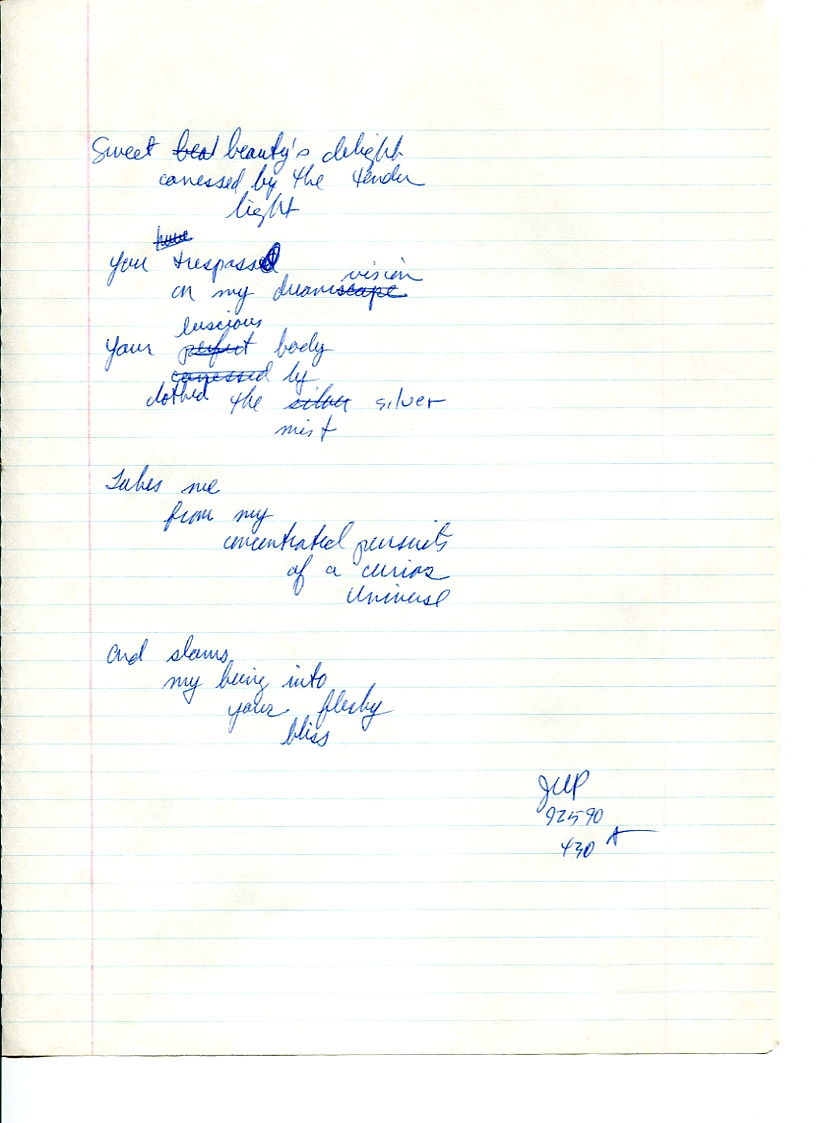 Sweet beat beauty's delight
caressed by the tender
light
have
you trespassed
vision
on my dreamscape
luscious
your perfect body
caressed by
clothed the silver silver
mist
Takes me
from my
concentrated pursuits
of a curios
Universe
and slams
my being into
your fleshy
bliss
92590
430 A